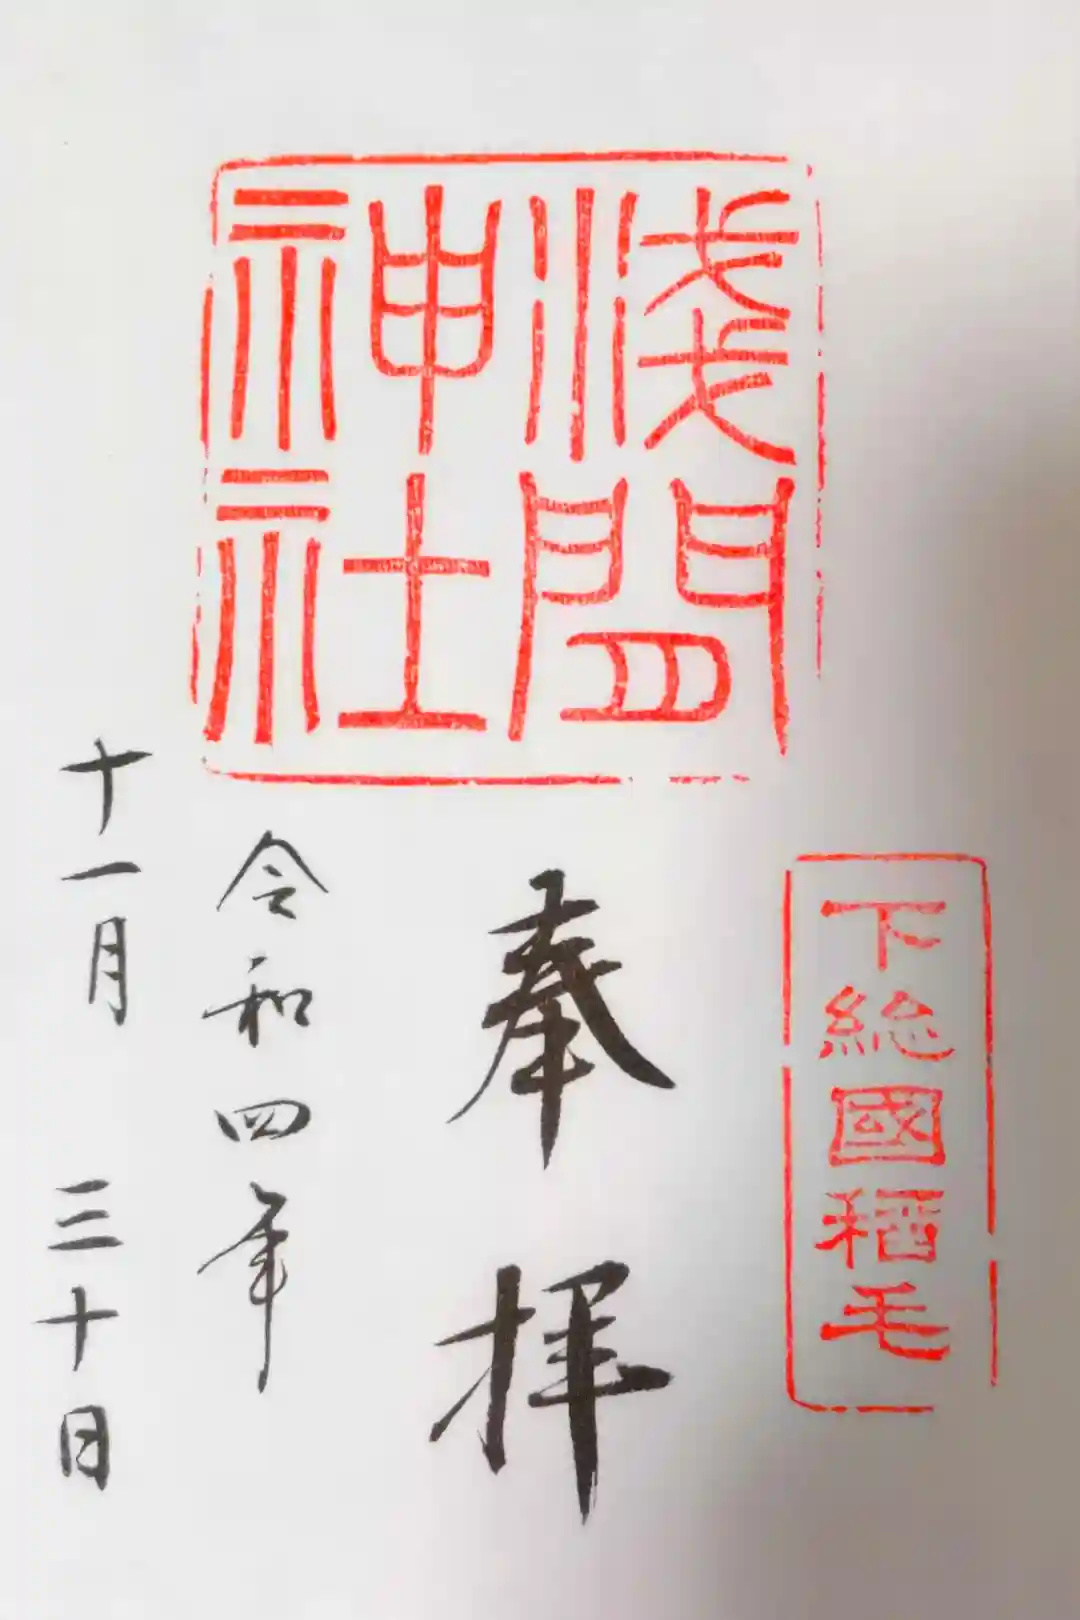 下総國稲毛
淺間
神社
奉拝
令和四年
十一月三十日